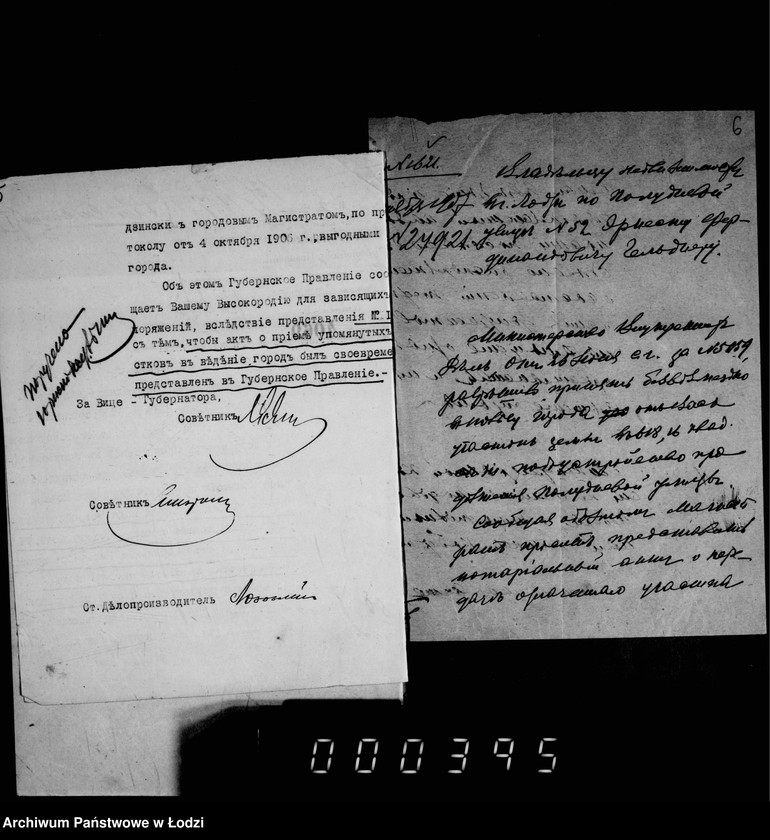 дзински ъ городовым ъ Магистратом ъ, по пр
токолу отъ 4 октября 1906 г., выгодными
города.
Объ этомъ Губернское Правленіе соо
щаетъ Вашему Высокородію для зависящихъ
поряженій, вслѣдствіе представленія № 1
съ тѣмъ, чтобы актъ о пріемѣ упомянутыхъ
стковъ въ вѣдѣніе городъ былъ своевреме
представленъ въ Губернское Правленіе.-
За Вице - Губернатора,
Совѣтникъ
Совѣтникъ
Ст. Дѣлопроизводитель
получено
6
Владѣльцу недвижимости
въ г. Лодзи по Полудневой
№ 27921 улицѣ № 52 Эрнесту Фер-
динандовичу Гельбигу.
Министерство Внутреннихъ
Дѣлъ отъ 26 Іюня с. г. за №
разрѣшило принять безвозмездно
въ пользу города
участокъ земли въ
продолженія Полудневой улицы.
Сообщая объ этомъ Магист
ратъ проситъ представить
нотаріальный актъ о пере-
дачѣ означеннаго участка
000395
Archiwum Państwowe w Łodzi